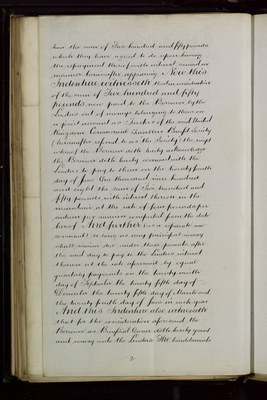 them the sum of Two hundred and fifty pounds
which they have agreed to do upon having
the repayment thereof with interest secured in
manner hereinafter appearing Now this
Indenture witnesseth that in consideration
of the sum of Two hundred and fifty
pounds now paid to the Borrower by the
Lenders out of moneys belonging to them on
a joint account as Trustees of the said United
Kingdom Commercial Travellers Benefit Society
(hereinafter referred to as the Society) the receipt
whereof the Borrower doth hereby acknowledge
the Borrower doth hereby covenant with the
Lenders to pay to them on the twenty fourth
day of June One thousand nine hundred
and eight the sum of Two hundred and
fifty pounds with interest thereon in the
meantime at the rate of four pounds per
centum per annum computed from the date
hereof And further as a separate
covenant so long as any principal money
shall remain due under these presents after
the said day to pay to the Lenders interest
thereon at the rate aforesaid by equal
quarterly payments on the twenty ninth
day of September the twenty fifth day of
December the twenty fifth day of March and
the twenty fourth day of June in each year
And this Indenture also witnesseth
that for the consideration aforesaid the
Borrower as Beneficial Owner doth hereby grant
and convey unto the Lenders All